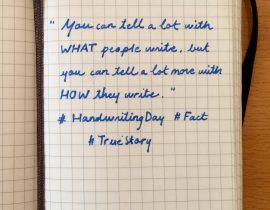 "You can tell a lot with
WHAT people write, but
you can tell a lot more with
HOW they write."
# HandwritingDay # Fact
# TrueStory